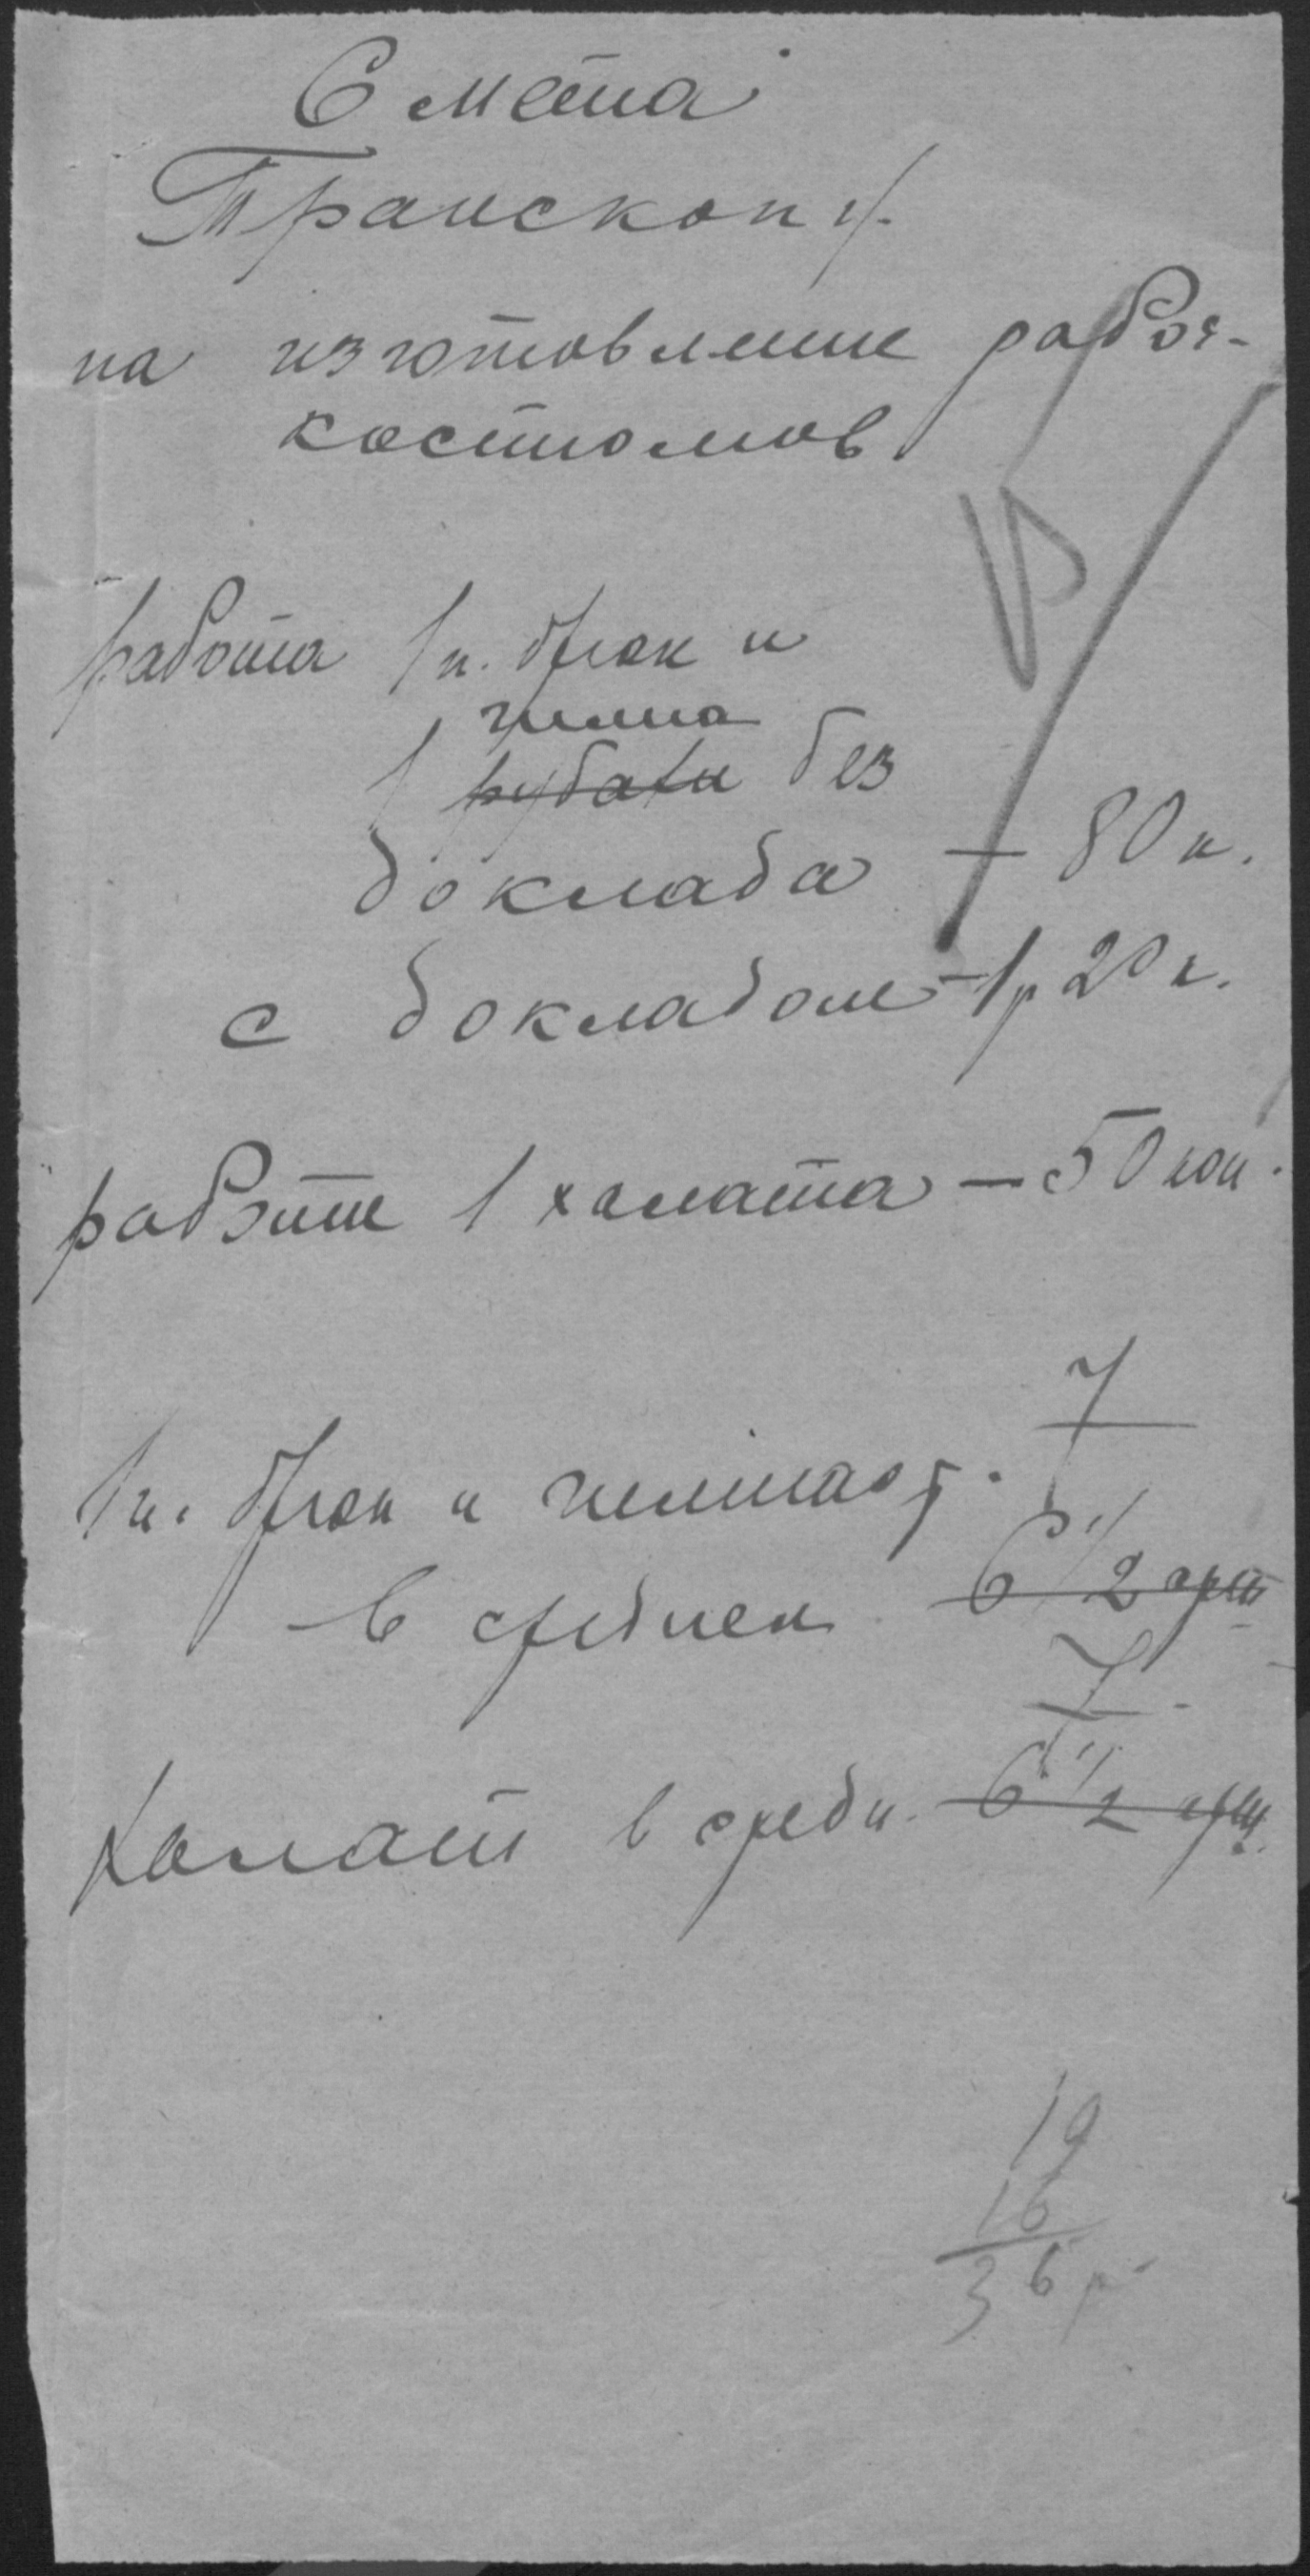 Смета
Транскоп
на изготовление рабоч.
костюмов
работа 1 п. брюк и
1 рубахи без
доклада — 80 к.
с докладом — 1 р 20 к.
работе 1 халата — 50 коп.
7
1 п. брюк и
в среднем 6 1/2 арш
7
Халат в средн. 6 1/2 арш.
19
16
36 р